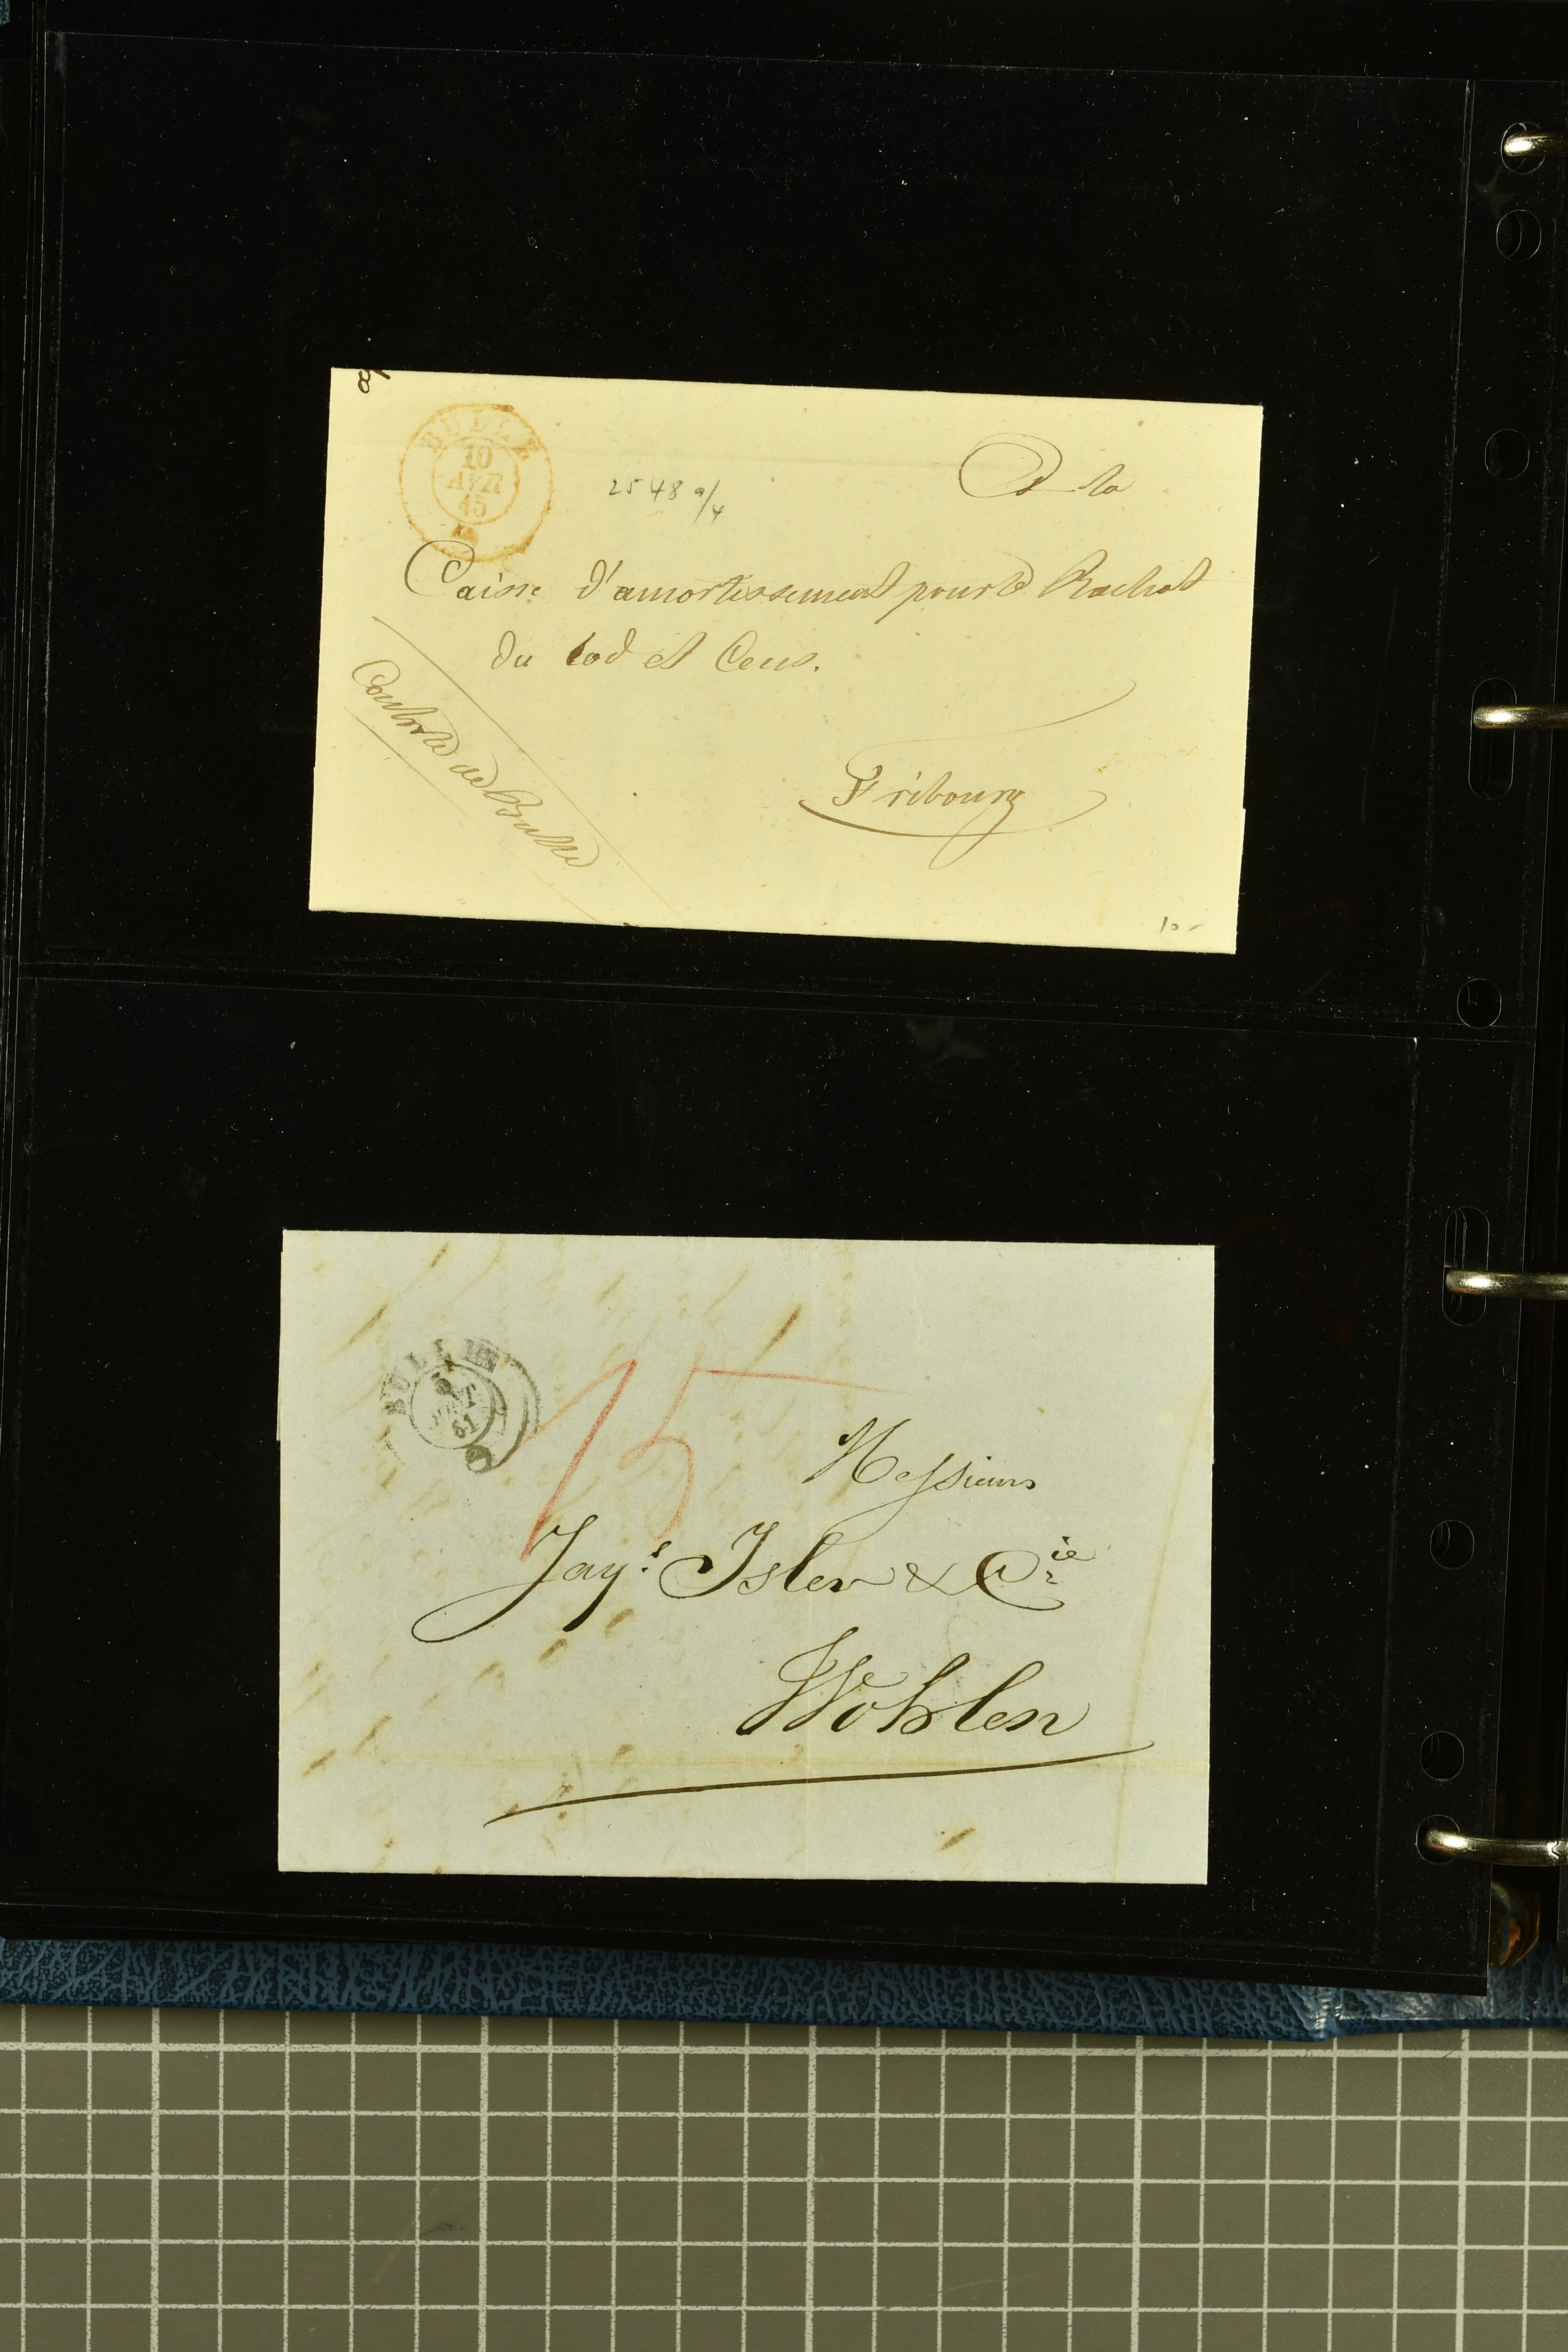 BULLE
10
AVR
45
2548 a/4
A la
Caisse d'amortissement pour le Rachat
du Lod et Cens.
Contrôle de Bulle
Fribourg
10 -
BULLE
51
15
Messieurs
Jaqs. Isler & Cie
Wohlen